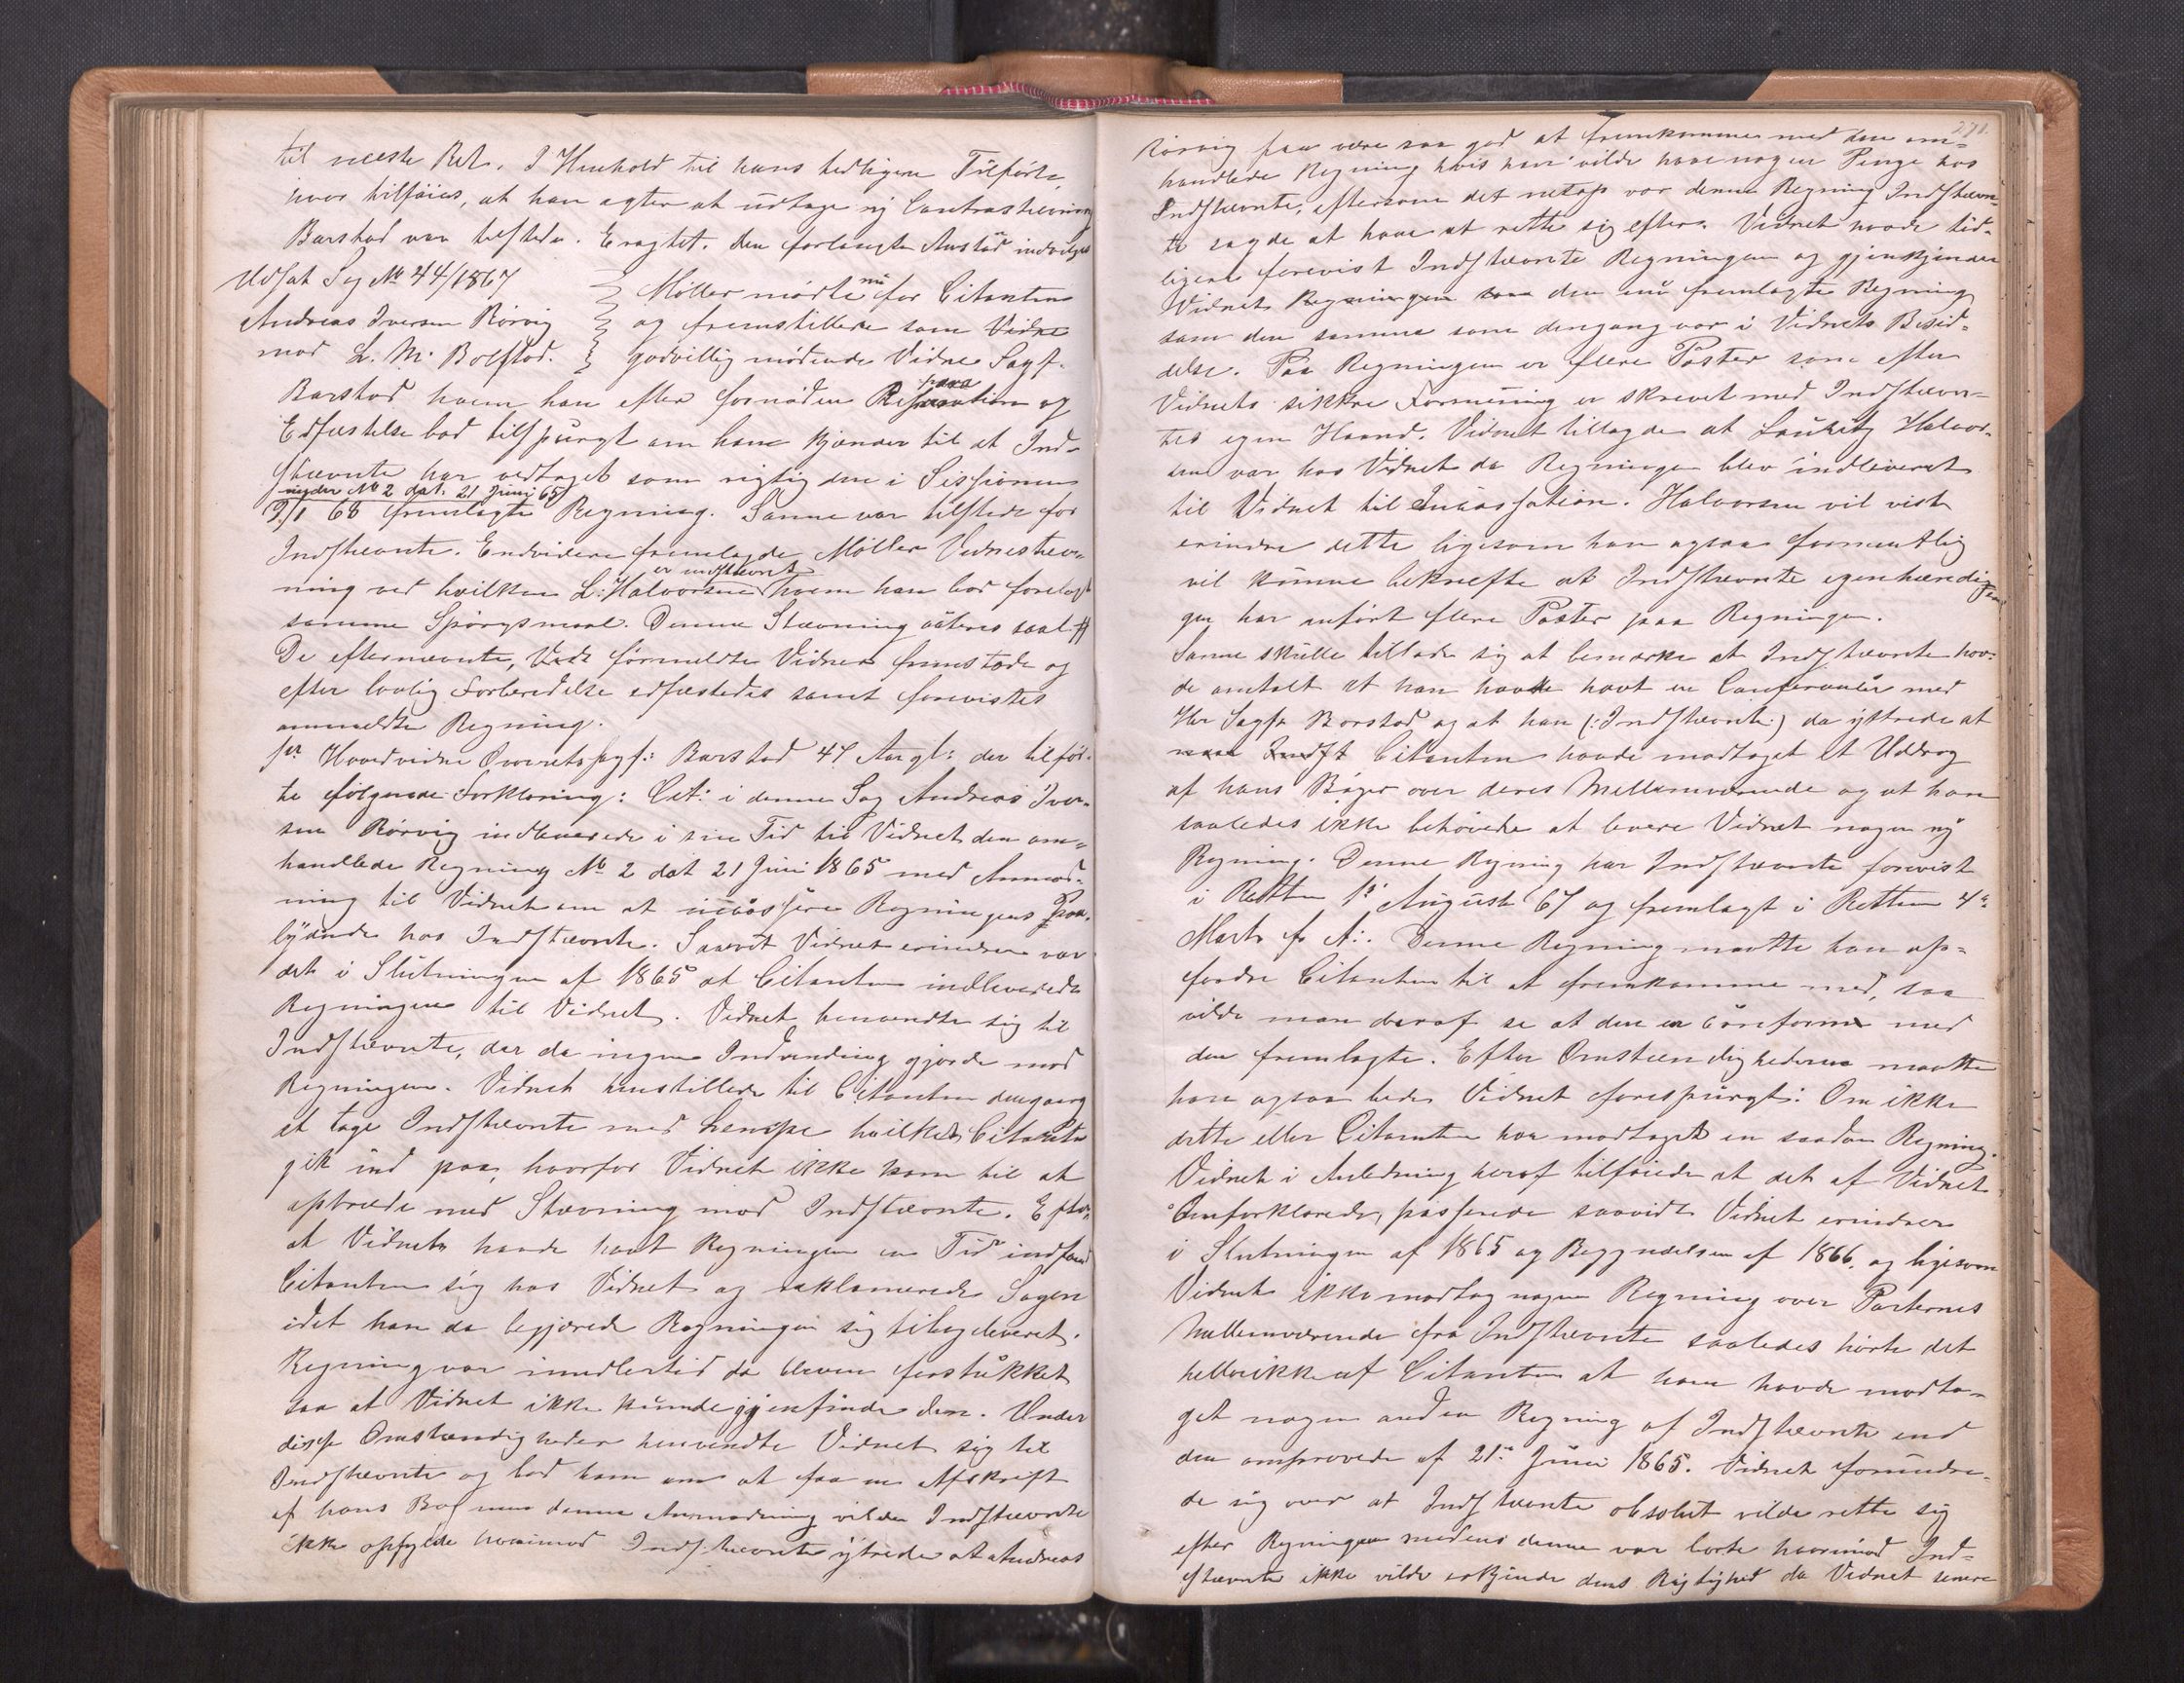 til næste Ret. I Henhold til hans tidligere Tilførte,
hvor tilføies, at han agter at udtage ny Contrastævning
Barstad var tilstede. Eragtet. den forlangte Anstand indvilges
Udsat Sag № 44/1867
Andreas Iversen Rørvig
mod L. M. Bolstad.
Møller mødte nu for Citanten
og fremstillede som Vidne
godvillig mødende Vidne Sagf.
Barstad hvem han efter fornøden og
Edfæstelse bad tilspurgt om han kjender til at Ind-
stævnte har vedtaget som rigtig den i Sessionen
under № 2 dat. 21 Juni 65
68 fremlagte Regning. Sanne var tilstede for
Indstævnte. Endvidere fremlagde Møller Vidnestæv-
ning ved hvilken L: Halvorsen er indstævnt hvem han bad forelagt
samme Spørgsmaal. Denne Stævning saal.
De efternævnte, Vide formeldte Vidner fremstode og
efter lovlig Forberedelse edfæstedes samt forevistes
ommeldte Regning.
1ste Hovedvidne Overretssagf: Barstad 47 Aar gl: der tilfør-
te følgende Forklaring: Cit: i denne Sag Andreas Iver-
sen Rørvig indleverede i sin Tid til Vidnet den om-
handlede Regning № 2 dat 21 Juni 1865 med Anmod-
ning til Vidnet om at incassere Regningens Paa-
lydende hos Indstævnte. Saavidt Vidnet erindrer var
det i Slutningen af 1865 at Citanten indleverede
Regningen til Vidnet. Vidnet henvendte sig til
Indstævnte, der da ingen Indvending gjorde mod
Regningen. Vidnet henstillede til Citanten dengang
at tage Indstævnte med Lempe hvilket Citanten
gik ind paa, hvorfor Vidnet ikke kom til at
optræde med Stævning mod Indstævnte. Efter-
at Vidnet havde havt Regningen en Tid indfandt
Citanten sig hos Vidnet og reklamerede Sagen
idet han da begjærede Regningen sig tilbageleveret.
Regning var imedlertid da bleven forstukket
saa at Vidnet ikke kunde gjenfinde den. Under
disse Omstændigheder henvendte Vidnet sig til
Indstævnte og bad ham om at faa en Afskrift
af hans Bog men denne Anmodning vilde Indstævnte
ikke opfylde hvorimod Indstævnte ytrede at Andreas
271.
Rørvig faar være saa god at fremkomme med den om-
handlede Regning hvis han vilde have nogen Penge hos
Indstævnte, eftersom det netop var denne Regning Indstævn-
te sagde at have at rette sig efter. Vidnet havde tid-
ligere forevist Indstævnte Regningen og gjenkjender
Vidnet Regningen som den nu fremlagte Regning
som den samme som dengang var i Vidnets Besid-
delse. Paa Regningen er flere Poster som efter
Vidnets sikkre Formening er skrevet med Indstævn-
tes egen Haand. Vidnet tillagde at Lauritz Halvor-
sen var hos Vidnet da Regningen blev indleveret
til Vidnet til Incassation. Halvorsen vil vist
erindre dette ligesom han ogsaa formentlig
vil kunne bekræfte at Indstævnte egenhændig
gen har anført flere Poster paa Regningen.
Sanne skulle tillade sig at bemærke at Indstævnte hav-
de omtalt at han havde havt en Conference med
Hr Sagfr Barstad og at han (: Indstævnte:) da yttrede at
naar Indst Citanten havde modtaget et Uddrag
af hans Bøger over deres Mellemværende og at han
saaledes ikke behøvede at levere Vidnet nogen ny
Regning. Denne Regning har Indstævnte forevist
i Retten 1s August 67 og fremlagt i Retten 4de
Marts f. A:. Denne Regning maatte han op-
fordre Citanten til at fremkomme med, saa
vilde man deraf se at den er conform med
den fremlagte. Efter Omstændighederne maatte
han ogsaa bede Vidnet forespurgt: Om ikke
dette eller Citanten har modtaget en saadan Regning.
Vidnet i Anledning heraf tilføiede at det af Vidnet
Omforklarede, passerede saavidt Vidnet erindrer
i Slutningen af 1865 og Begyndelsen af 1866. og ligesom
Vidnet ikke modtog nogen Regning over Parternes
Mellemværende fra Indstævnte saaledes hørte det
hellerikke af Citanten at han havde modta-
get nogen anden Regning af Indstævnte end
den omprovede af 21de Juni 1865. Vidnet forundre-
de sig over at Indstævnte absolut vilde rette sig
efter Regningen medens denne var borte hvorimod Ind-
stævnte ikke vilde erkjende dens Rigtighed da Vidnet senere